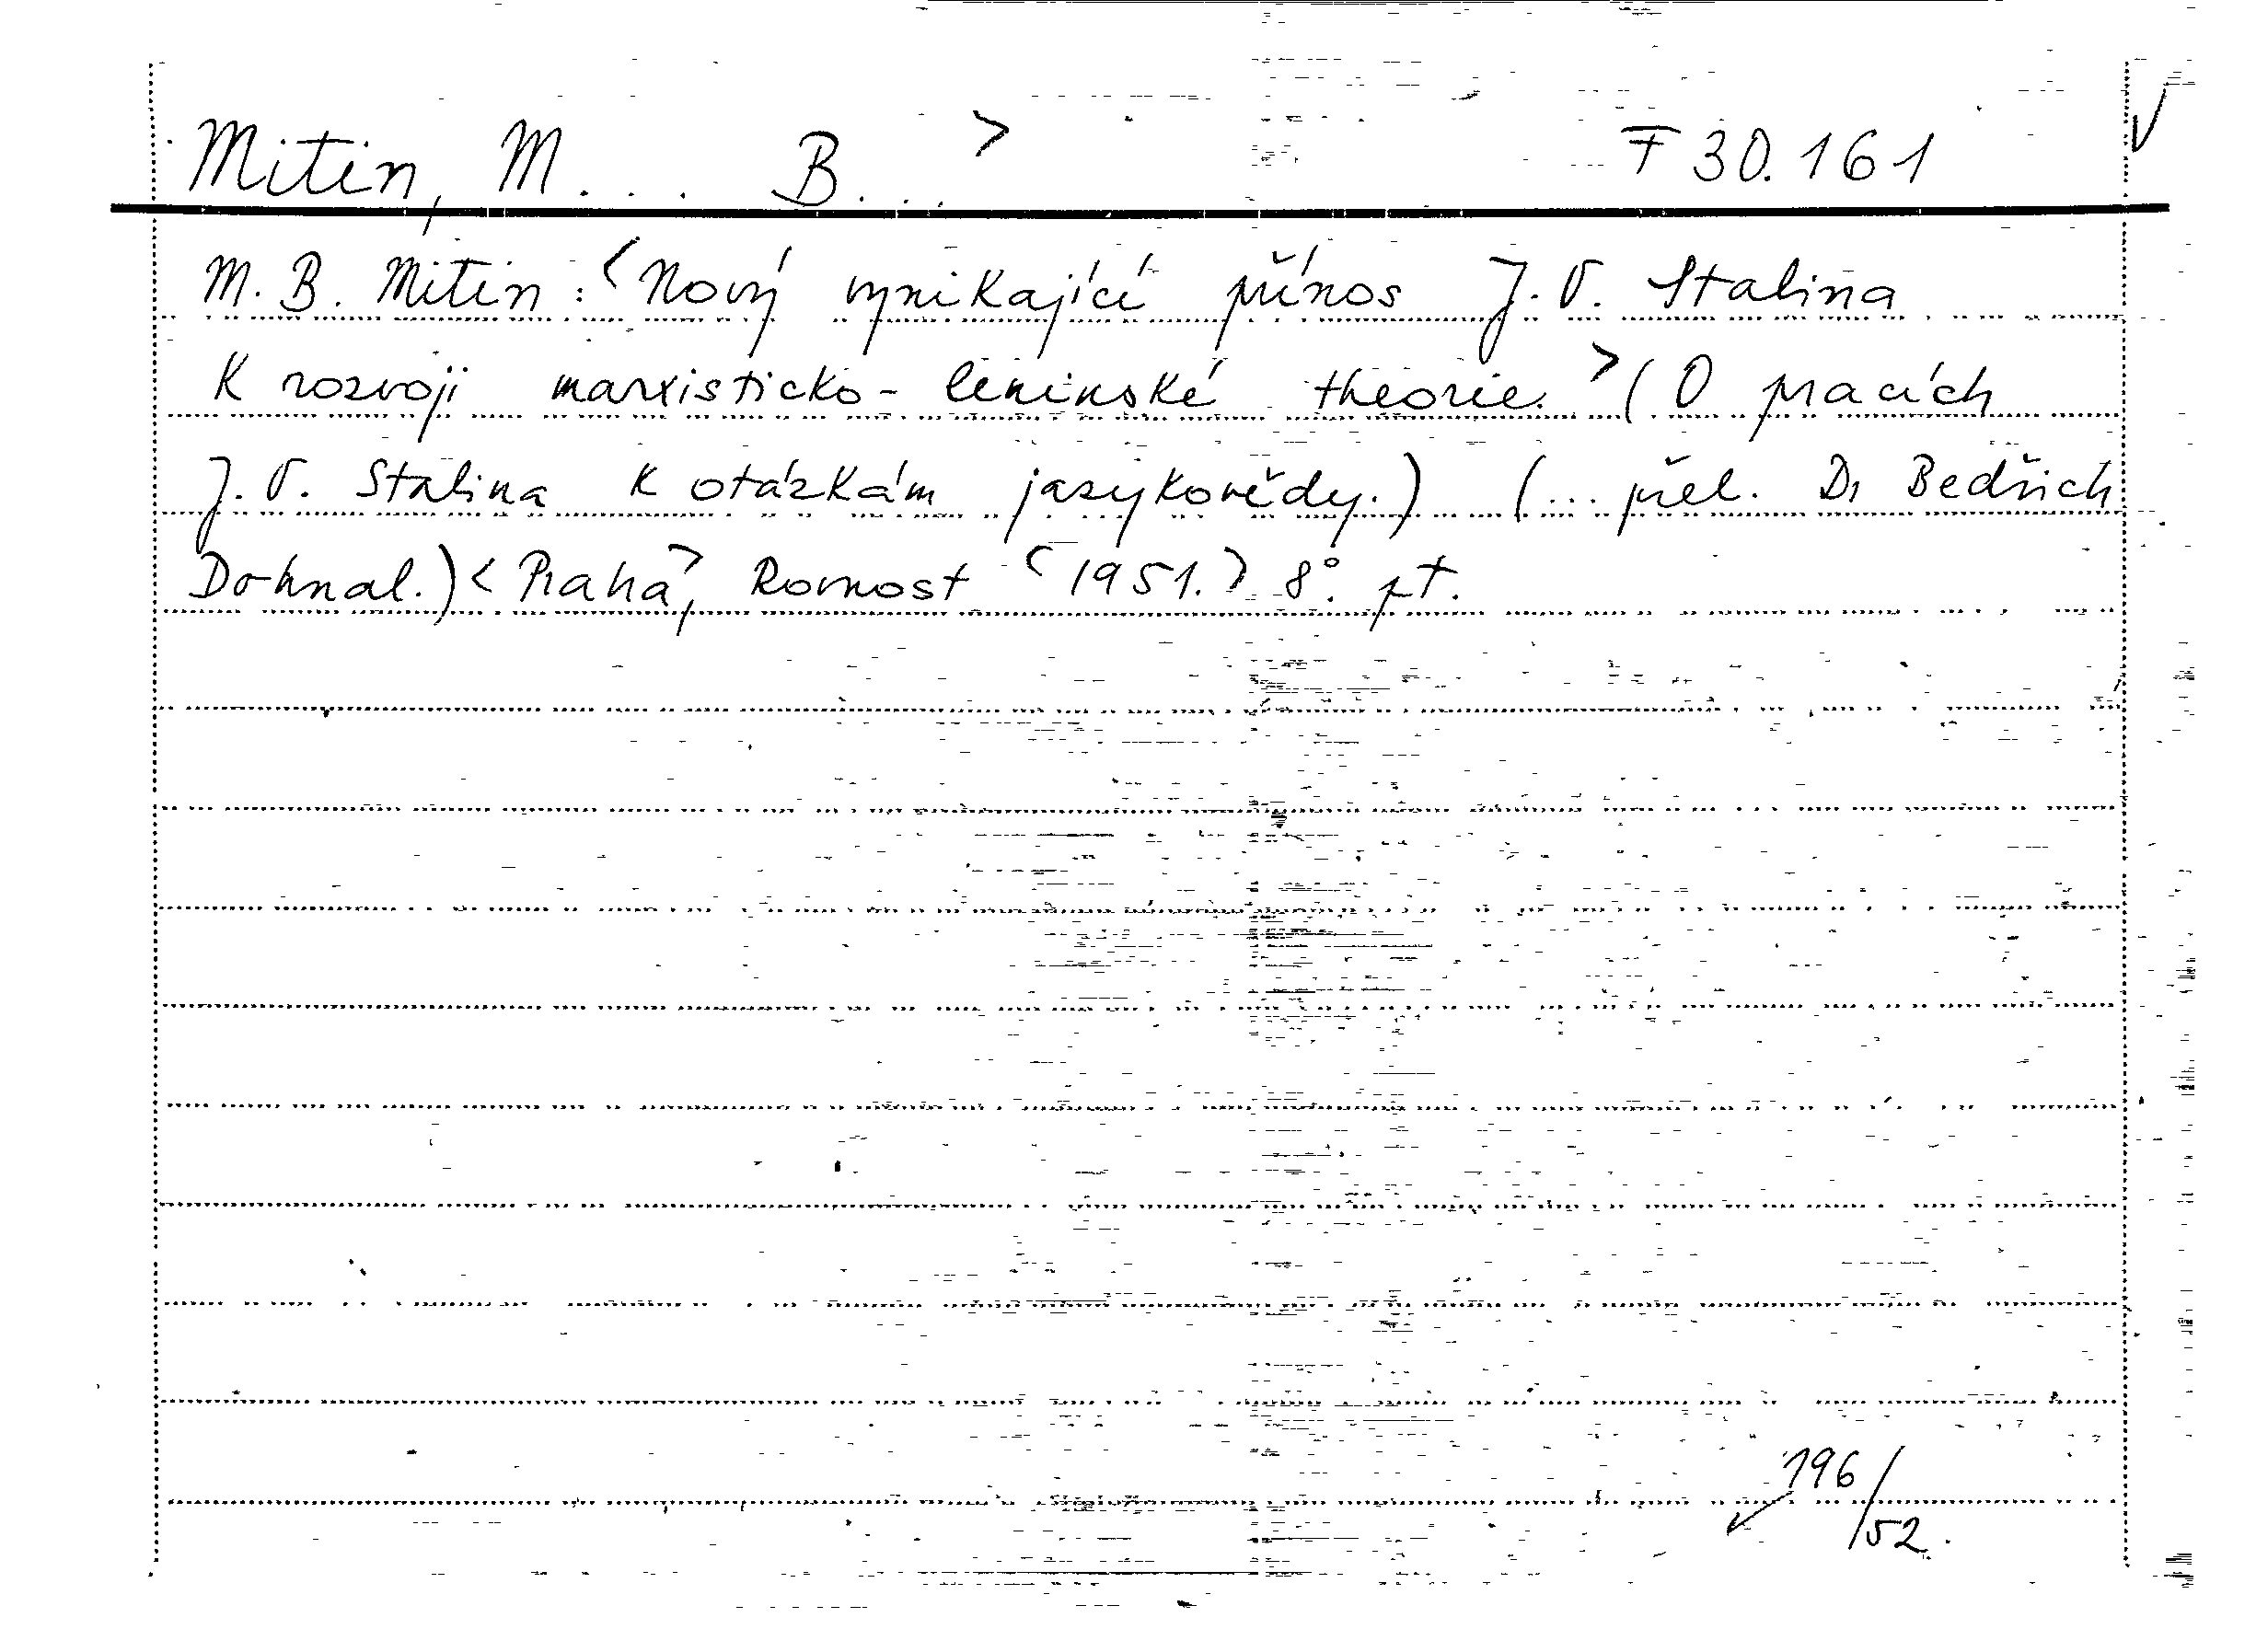 Mitin, M... B...> F 30.161
M. B. Mitin: <Nový vynikající přínos J. V. Stalina
K rozvoji marxisticko-leninské theorie.> (O pracích
J. V. Stalina K otázkám jazykovědy.) (... přel. Dr Bedřich
Dohnal.) <Praha>, Rovnost <1951.> 8°. pt.
196/52.